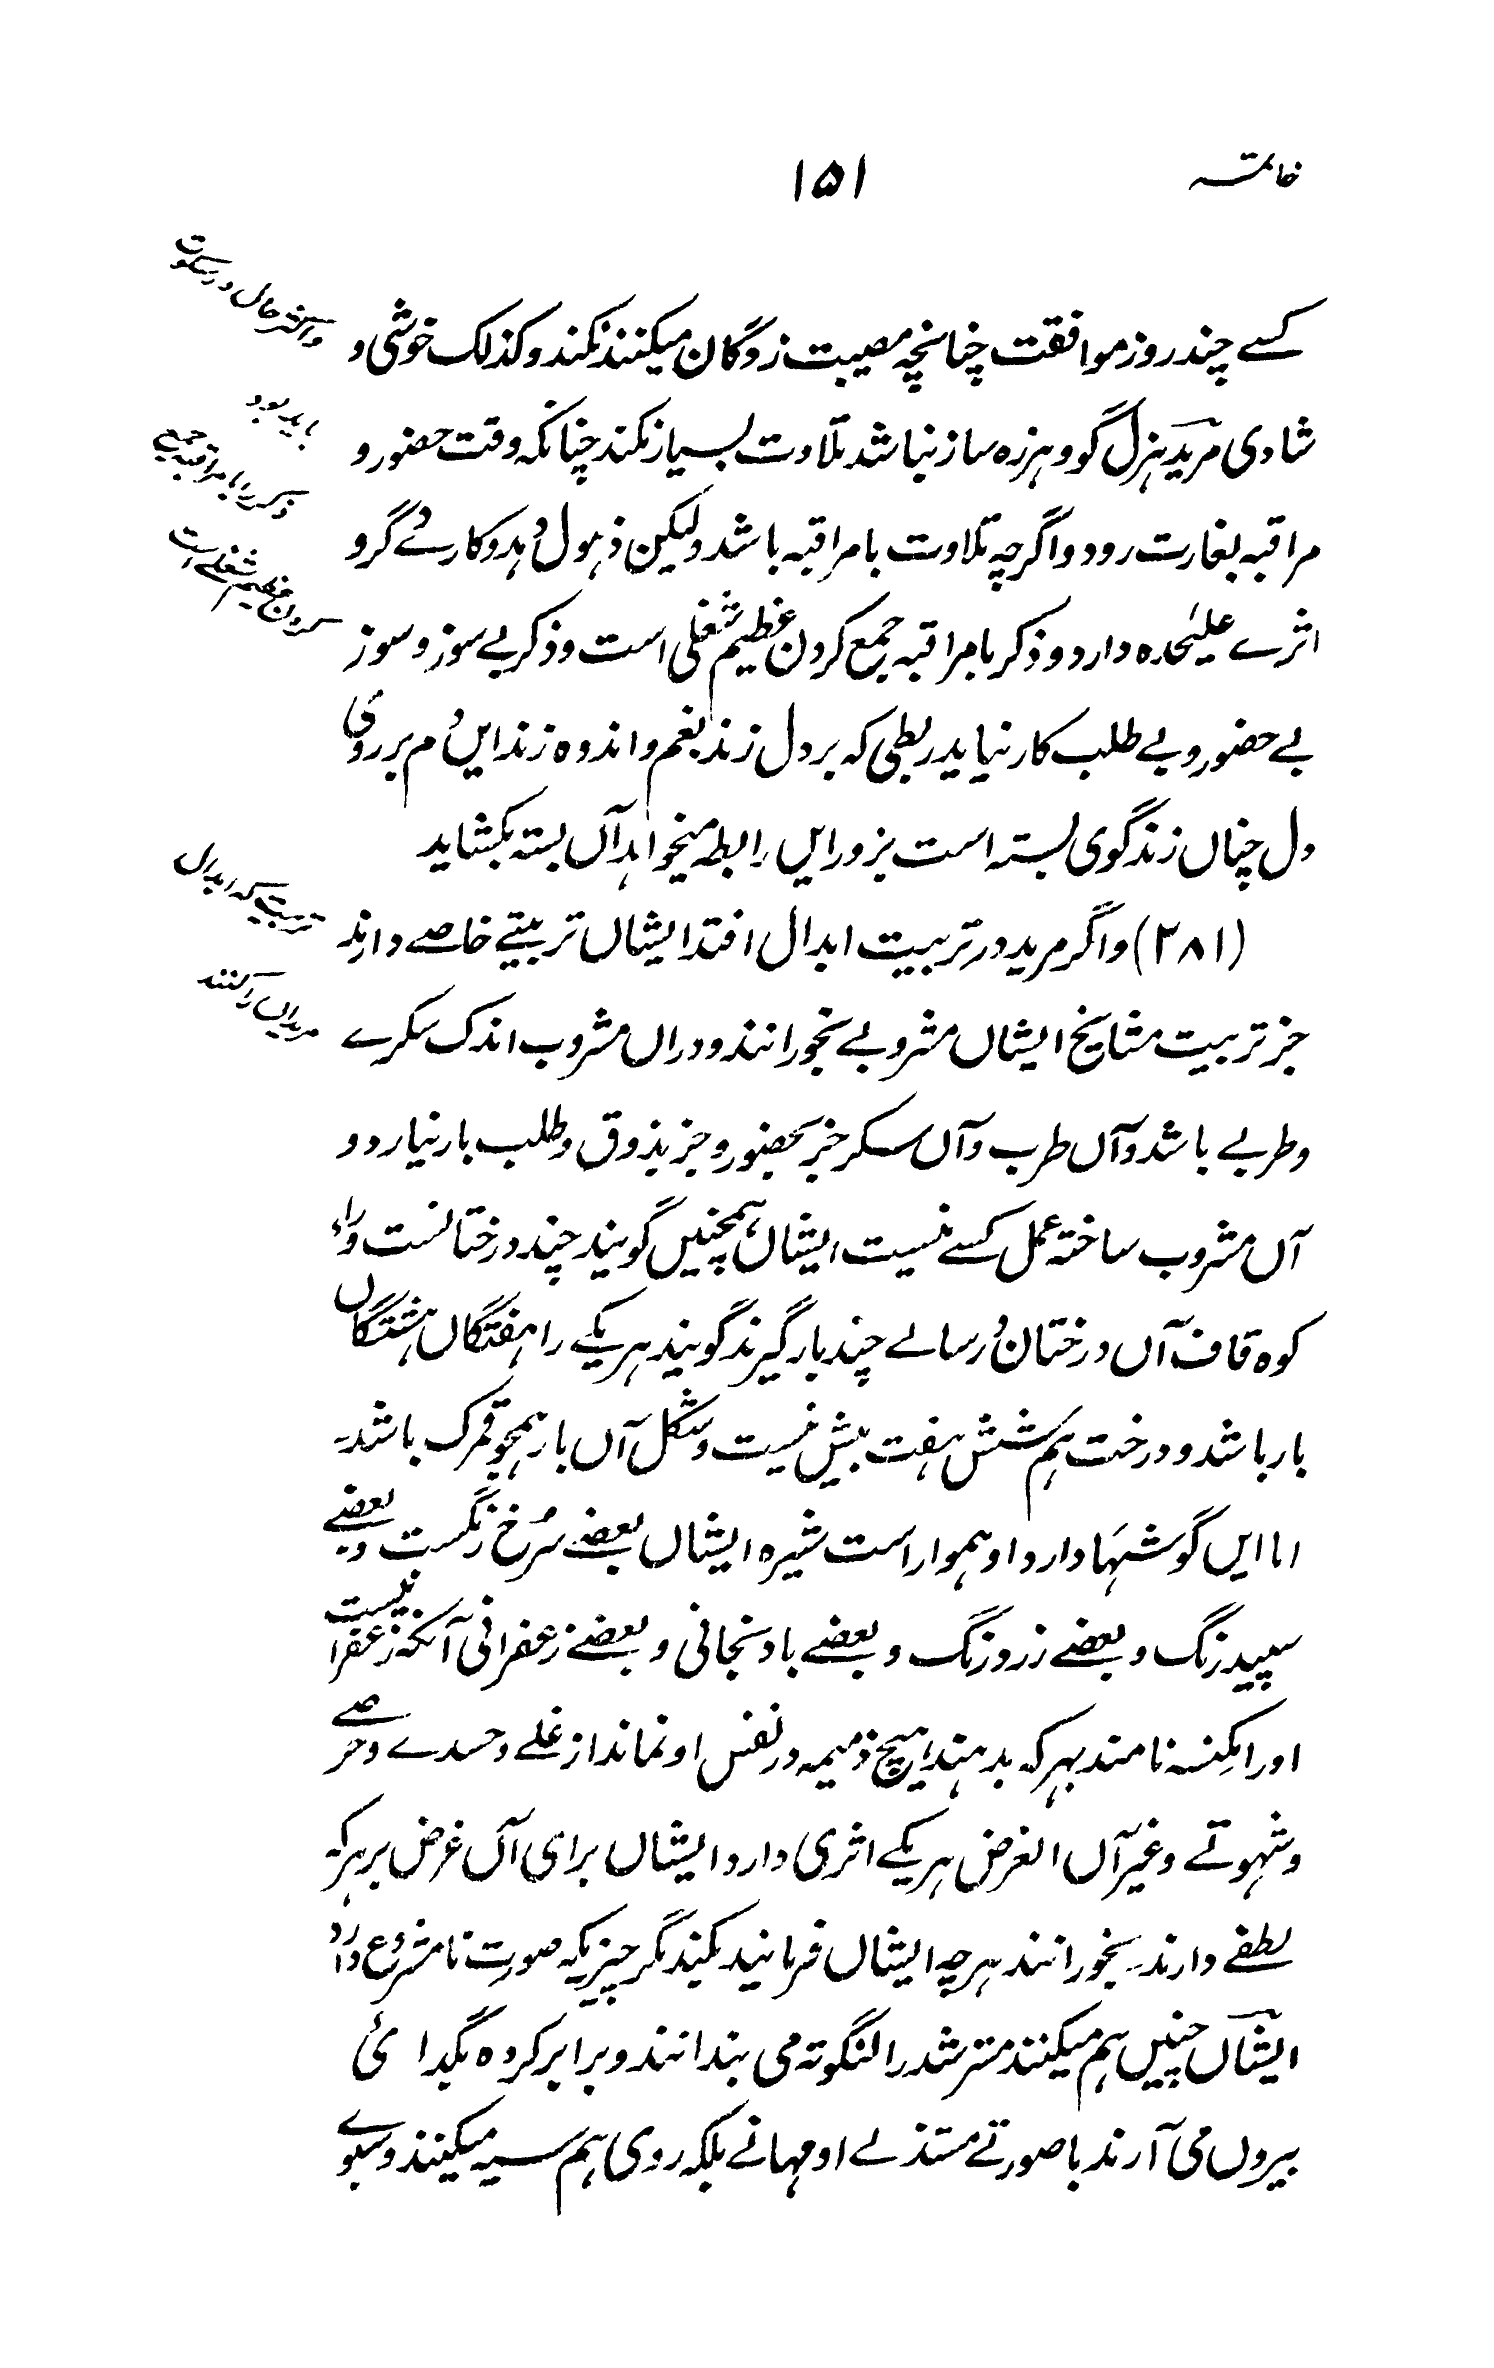 خاتمہ
۱۵۱
کسے چند روز موافقت چنانچہ مصیبت زدگان میکنند نکند و کذلک خوشی و
شادی مرید ہزل گو و ہرزہ ساز نباشد تلاوت بسیار نکند چنانکہ وقت حضور و
مراقبہ بغارت رود و اگرچہ تلاوت با مراقبہ باشد ولیکن ذہول دہد و کارے گرو
اثرے علیٰحدہ دارد و ذکر با مراقبہ جمع کردن عظیم شغلی است و ذکر بے سوز و سوز
بے حضور و بے طلب کار نیاید ربطی کہ بر دل زند بغم و اندوہ زند ایں دم بر روی
دل چناں زند گوی بستہ است بزور ایں رابطہ میخواہد آں بستہ بکشاید
(۲۸۱) و اگر مرید در تربیت ابدال افتد ایشاں تربیتے خاصے دارند
جز تربیت مشایخ ایشاں مشروبے بخورانند و دراں مشروب اندک سکرے
و طربے باشد و آں طرب و آں سکر جز بحضور و جز بذوق و طلب بار نیارد و
آں مشروب ساختہ عمل کسے نیست ایشاں ہمچنیں گویند چند درختانست وراء
کوہ قاف آں درختان در سالے چند بار گیرند گویند ہر یکے را ہفتگاں ہشتگاں
بار باشد و درخت ہم شش ہفت بیش نیست و شکل آں بار ہمچو قمرک باشد۔
اما ایں گوشہا دارد او ہموار است شیرہ ایشاں بعضے سُرخ رنگست و بعضے
سپید رنگ و بعضے زرد رنگ و بعضے بادنجانی و بعضے زعفرانی آنکہ زعفرانیست
اورا مکنسہ نامند بہر کہ بدہند ہیچ ذمیمہ در نفس او نماند از غلے و حسدے و حرصے
و شہوتے و غیر آں الغرض ہر یکے اثری دارد ایشاں برای آں غرض بر ہرکہ
لطفے دارند۔ بخورانند ہرچہ ایشاں فرمایند بکند مگر چیزیکہ صورت نامشروع دارد
ایشاں چنیں ہم میکنند مسترشد را لنگوتہ می بندانند و برابر کردہ بگدائی
بیروں می آرند با صورتے مستذلے او مہانے بلکہ روی ہم سیہ میکنند و سبوے
و اکثر حال در سکوت
باید بود
ذکر را با مراقبہ جمع
کردن عظیم شغلے است
تربیت کہ ابدال
مریداں را کنند